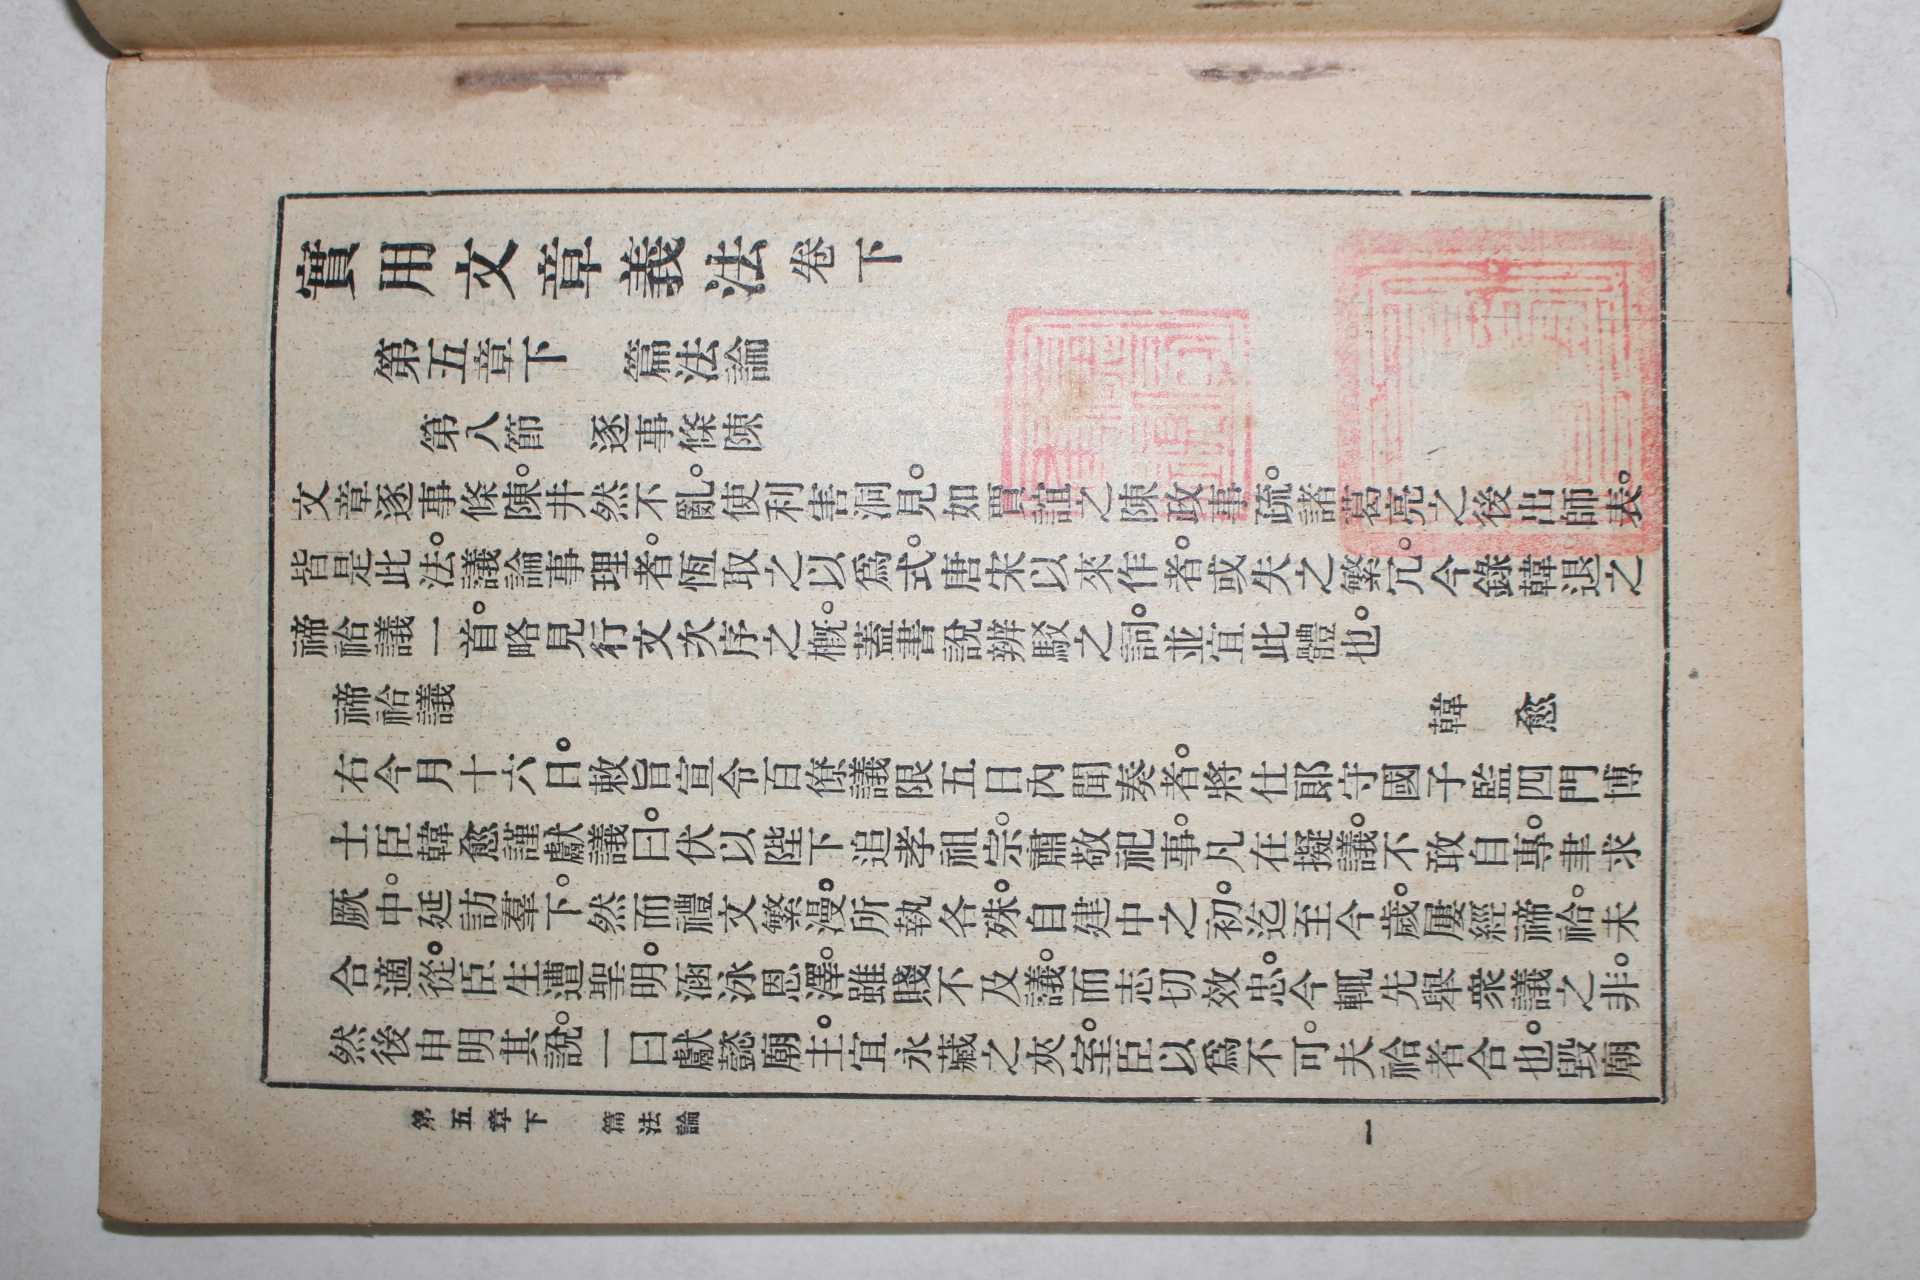 實用文章義法卷下
第五章下　篇法論
第八節　逐事條陳
文章逐事條陳。井然不亂。使利害洞見。如賈誼之陳政事疏。諸葛亮之後出師表。
皆是此法。議論事理者。恆取之以爲式。唐宋以來作者。或失之繁冗。今錄韓退之
禘祫議一首。略見行文次序之概。蓋書說辨駁之詞。並宜此體也。
禘祫議
韓　愈
右今月十六日。敕旨宣令百僚議限五日內聞奏者。將仕郞守國子監四門博
士臣韓愈謹獻議曰。伏以陛下追孝祖宗。肅敬祀事。凡在擬議。不敢自專。聿求
厥中。延訪羣下。然而禮文繁漫。所執各殊。自建中之初。迄至今歲。屢經禘祫。未
合適從。臣生遭聖明。涵泳恩澤。雖賤不及議。而志切效忠。今輒先舉衆議之非。
然後申明其說。一曰獻懿廟主。宜永藏之夾室。臣以爲不可。夫祫者合也。毀廟
第五章下　篇法論
一